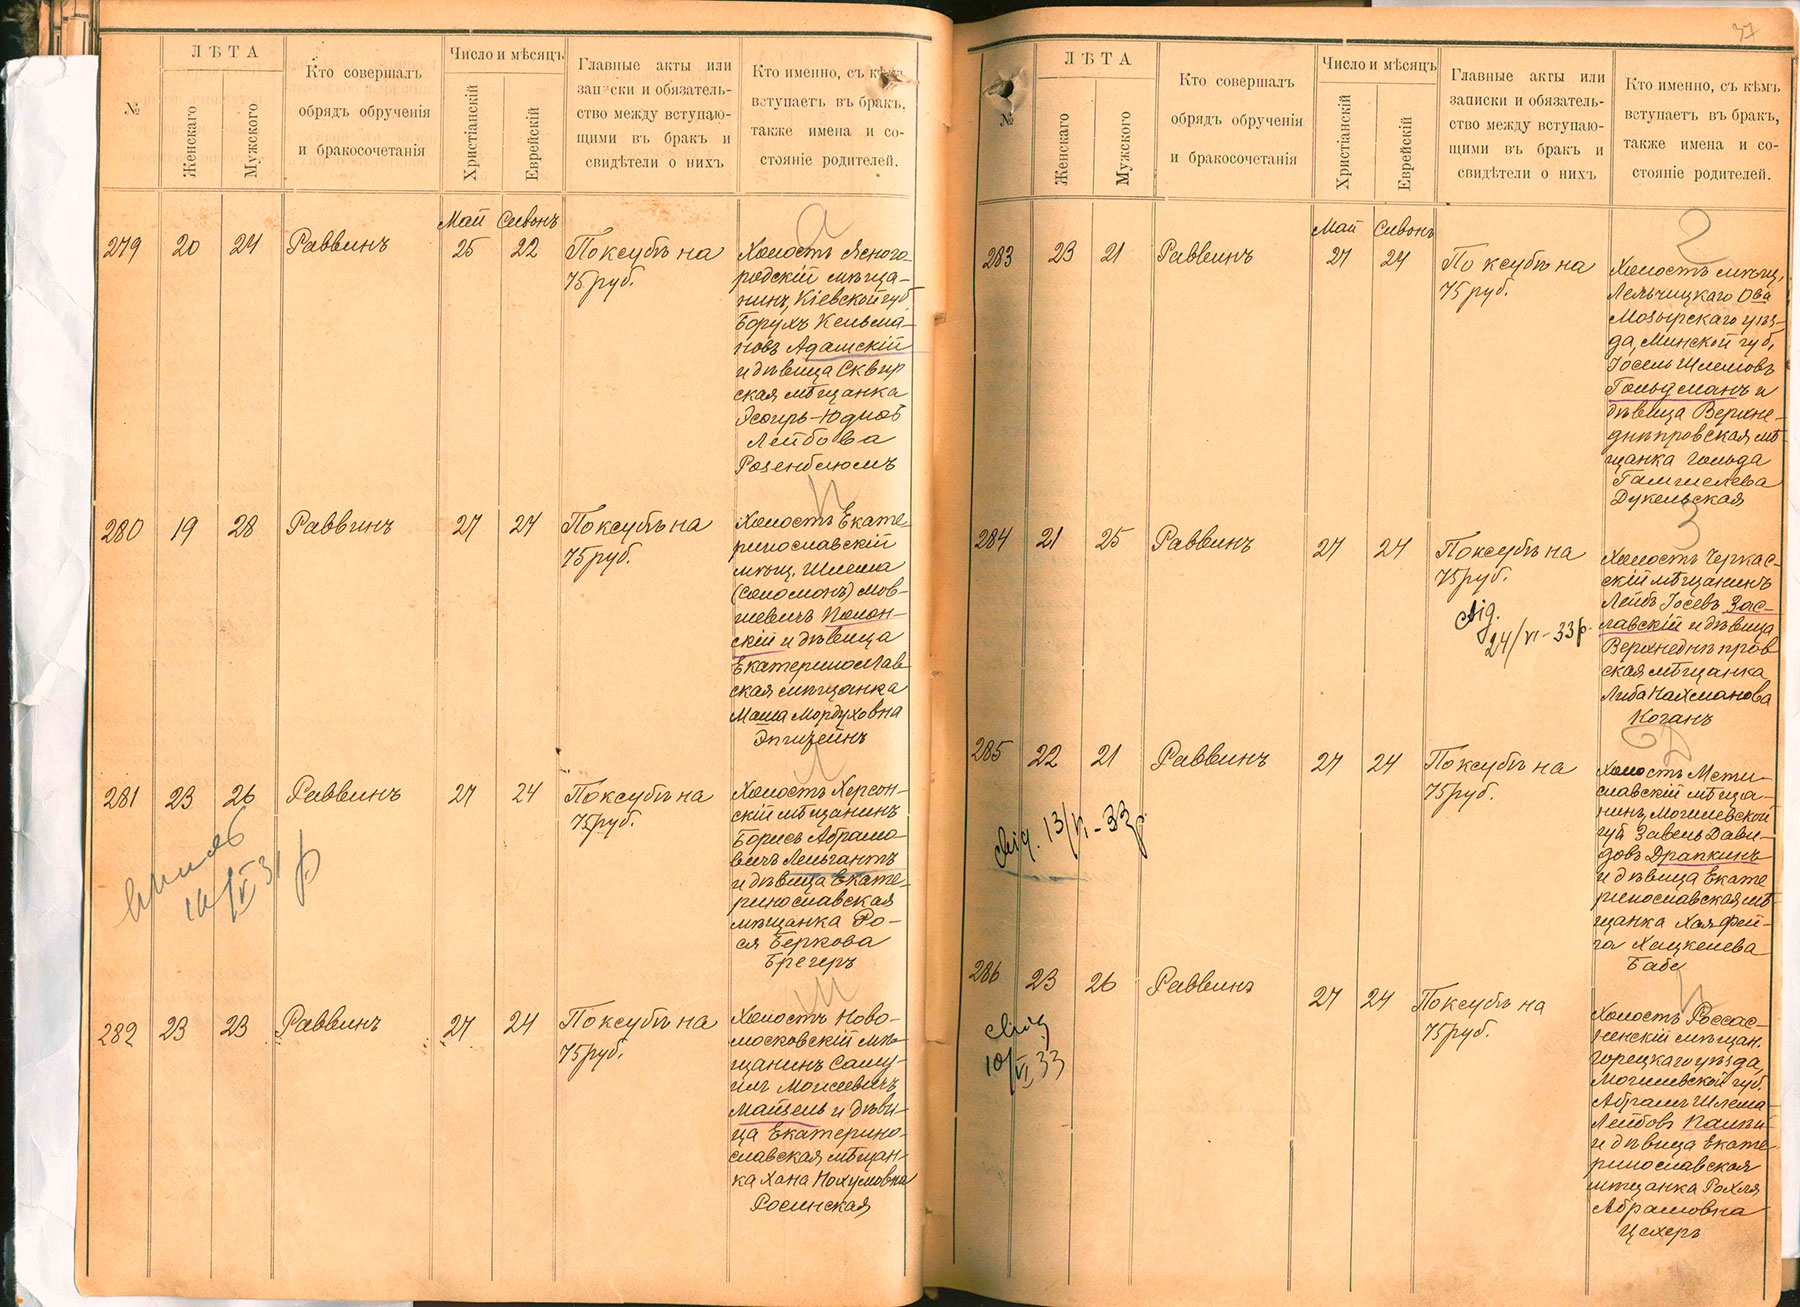 ЛѢТА
Число и мѣсяцъ
№
Женскаго
Мужского
Кто совершалъ
обрядъ обрученія
и бракосочетанія
Христіанскій
Еврейскій
Главные акты или
записки и обязатель-
ство между вступаю-
щими въ бракъ и
свидѣтели о нихъ
Кто именно, съ кѣмъ
вступаетъ въ бракъ,
также имена и со-
стояніе родителей.
Май Сивонъ
279 20 24 Раввинъ 25 22 По ксубѣ на
75 руб.
Холостъ Ясного-
родскій мѣща-
нинъ Кіевской губ
Борухъ Кельма-
новъ Адамскій
и дѣвица Сквир
ская мѣщанка
Эсѳирь-Юдисъ
Лейбова
Розенблюмъ
280 19 28 Раввинъ 27 24 По ксубѣ на
75 руб.
Холостъ Екате-
ринославскій
мѣщ. Шлема
(Соломонъ) Мов-
шевичъ Полон-
скій и дѣвица
Екатеринослав
ская мѣщанка
Маша Мордуховна
Эпштейнъ
281 23 26 Раввинъ 27 24 По ксубѣ на
75 руб.
Холостъ Херсон-
скій мѣщанинъ
Борисъ Абрамо-
вичъ Лельгантъ
и дѣвица Екате-
ринославская
мѣщанка Ро-
ся Беркова
Брегеръ
16/VI 31 р
282 23 23 Раввинъ 27 24 По ксубѣ на
75 руб.
Холостъ Ново-
московскій мѣ-
щанинъ Саму-
илъ Моисеевичъ
Майзель и дѣви
ца Екатерино-
славская мѣщан-
ка Хана Нохумовна
Росинская
37
ЛѢТА
Число и мѣсяцъ
№
Женскаго
Мужского
Кто совершалъ
обрядъ обрученія
и бракосочетанія
Христіанскій
Еврейскій
Главные акты или
записки и обязатель-
ство между вступаю-
щими въ бракъ и
свидѣтели о нихъ
Кто именно, съ кѣмъ
вступаетъ въ бракъ,
также имена и со-
стояніе родителей.
Май Сивонъ
283 23 21 Раввинъ 27 24 По ксубѣ на
75 руб.
Холостъ мѣщ.
Лельчицкаго О-ва
Мозырскаго уѣз-
да, Минской губ,
Іосель Шлемовъ
Гольдманъ и
дѣвица Верхне-
днѣпровская мѣ-
щанка Гольда
Гамшелева
Дукельская
284 21 25 Раввинъ 27 24 По ксубѣ на
75 руб.
24/VI-33р.
Холостъ Черкас-
скій мѣщанинъ
Лейбъ Іосевъ Зас-
лавскій и дѣвица
Верхнеднѣпров
ская мѣщанка
Либа Нахманова
Коганъ
285 22 21 Раввинъ 27 24 По ксубѣ на
75 руб.
13/VI-33р
Холостъ Мсти-
славскій мѣща-
нинъ, Могилевской
губ Завель Дави-
довъ Драпкинъ
и дѣвица Екате
ринославская мѣ
щанка Хая Фей-
га Хацкелева
Бабс
286 23 26 Раввинъ 27 24 По ксубѣ на
75 руб.
10/VI 33
Холостъ Россас-
ненскій мѣщан.
Горецкаго уѣзда,
Могилевской губ,
Абрамъ Шлема-
Лейбовъ
и дѣвица Екате
ринославская
мѣщанка Рохля
Абрамовна
Цехеръ